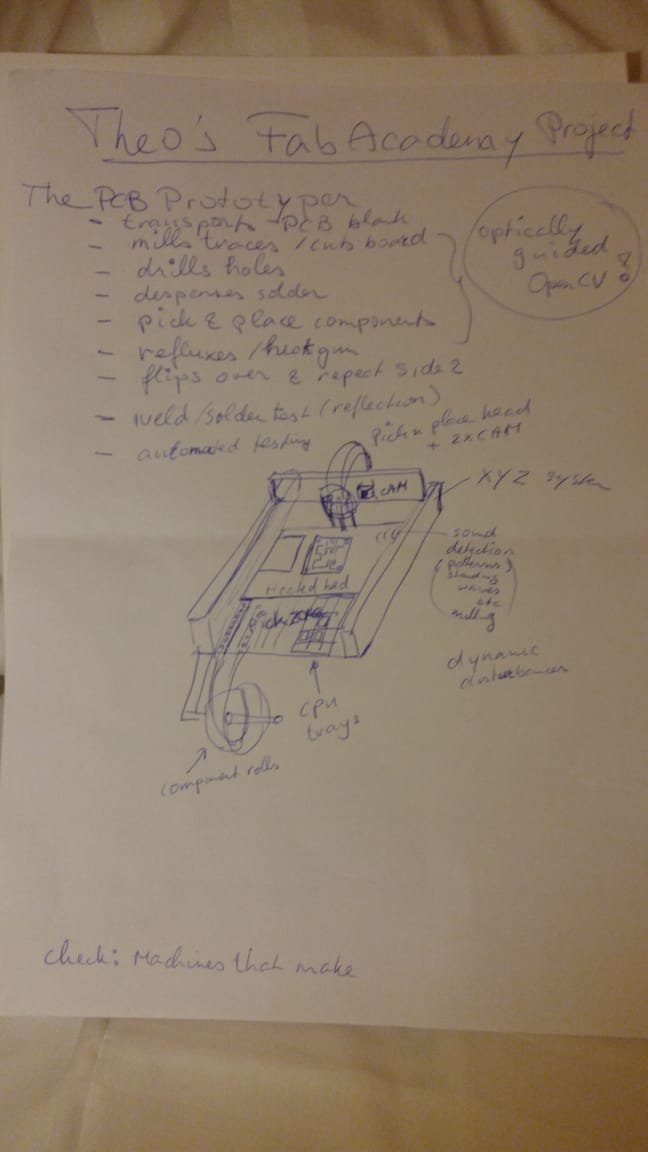 Theo's FabAcademy Project
The PCB Prototyper
- transports PCB blank
- mills traces / cuts board
- drills holes
- despenses solder
- pick & place components
- refluxes / heatgun
- flips over & repeat side 2
- weld/solder test (reflection)
- automated testing
optically
guided
OpenCV
pick n place head
+ 2x CAM
CAM
XYZ system
sound
detection
(patterns)
standing
waves
etc
milling
bed
dynamic
disturbances
cpu
trays
component rolls
check: Machines that make